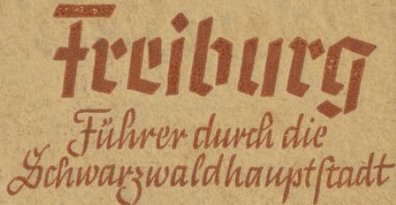 Freiburg
Führer durch die
Schwarzwaldhauptſtadt